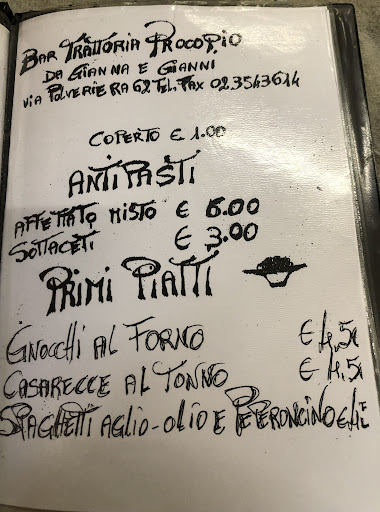 BAR TRATTORIA PROCOPIO
DA GIANNA E GIANNI
VIA POLVERIERA 62 TEL. FAX 02.3543614
COPERTO € 1.00
ANTIPASTI
AFFETTATO MISTO € 6.00
SOTTACETI € 3.00
PRIMI PIATTI
GNOCCHI AL FORNO € 4,50
CASARECCE AL TONNO € 4,50
SPAGHETTI AGLIO-OLIO E PEPERONCINO